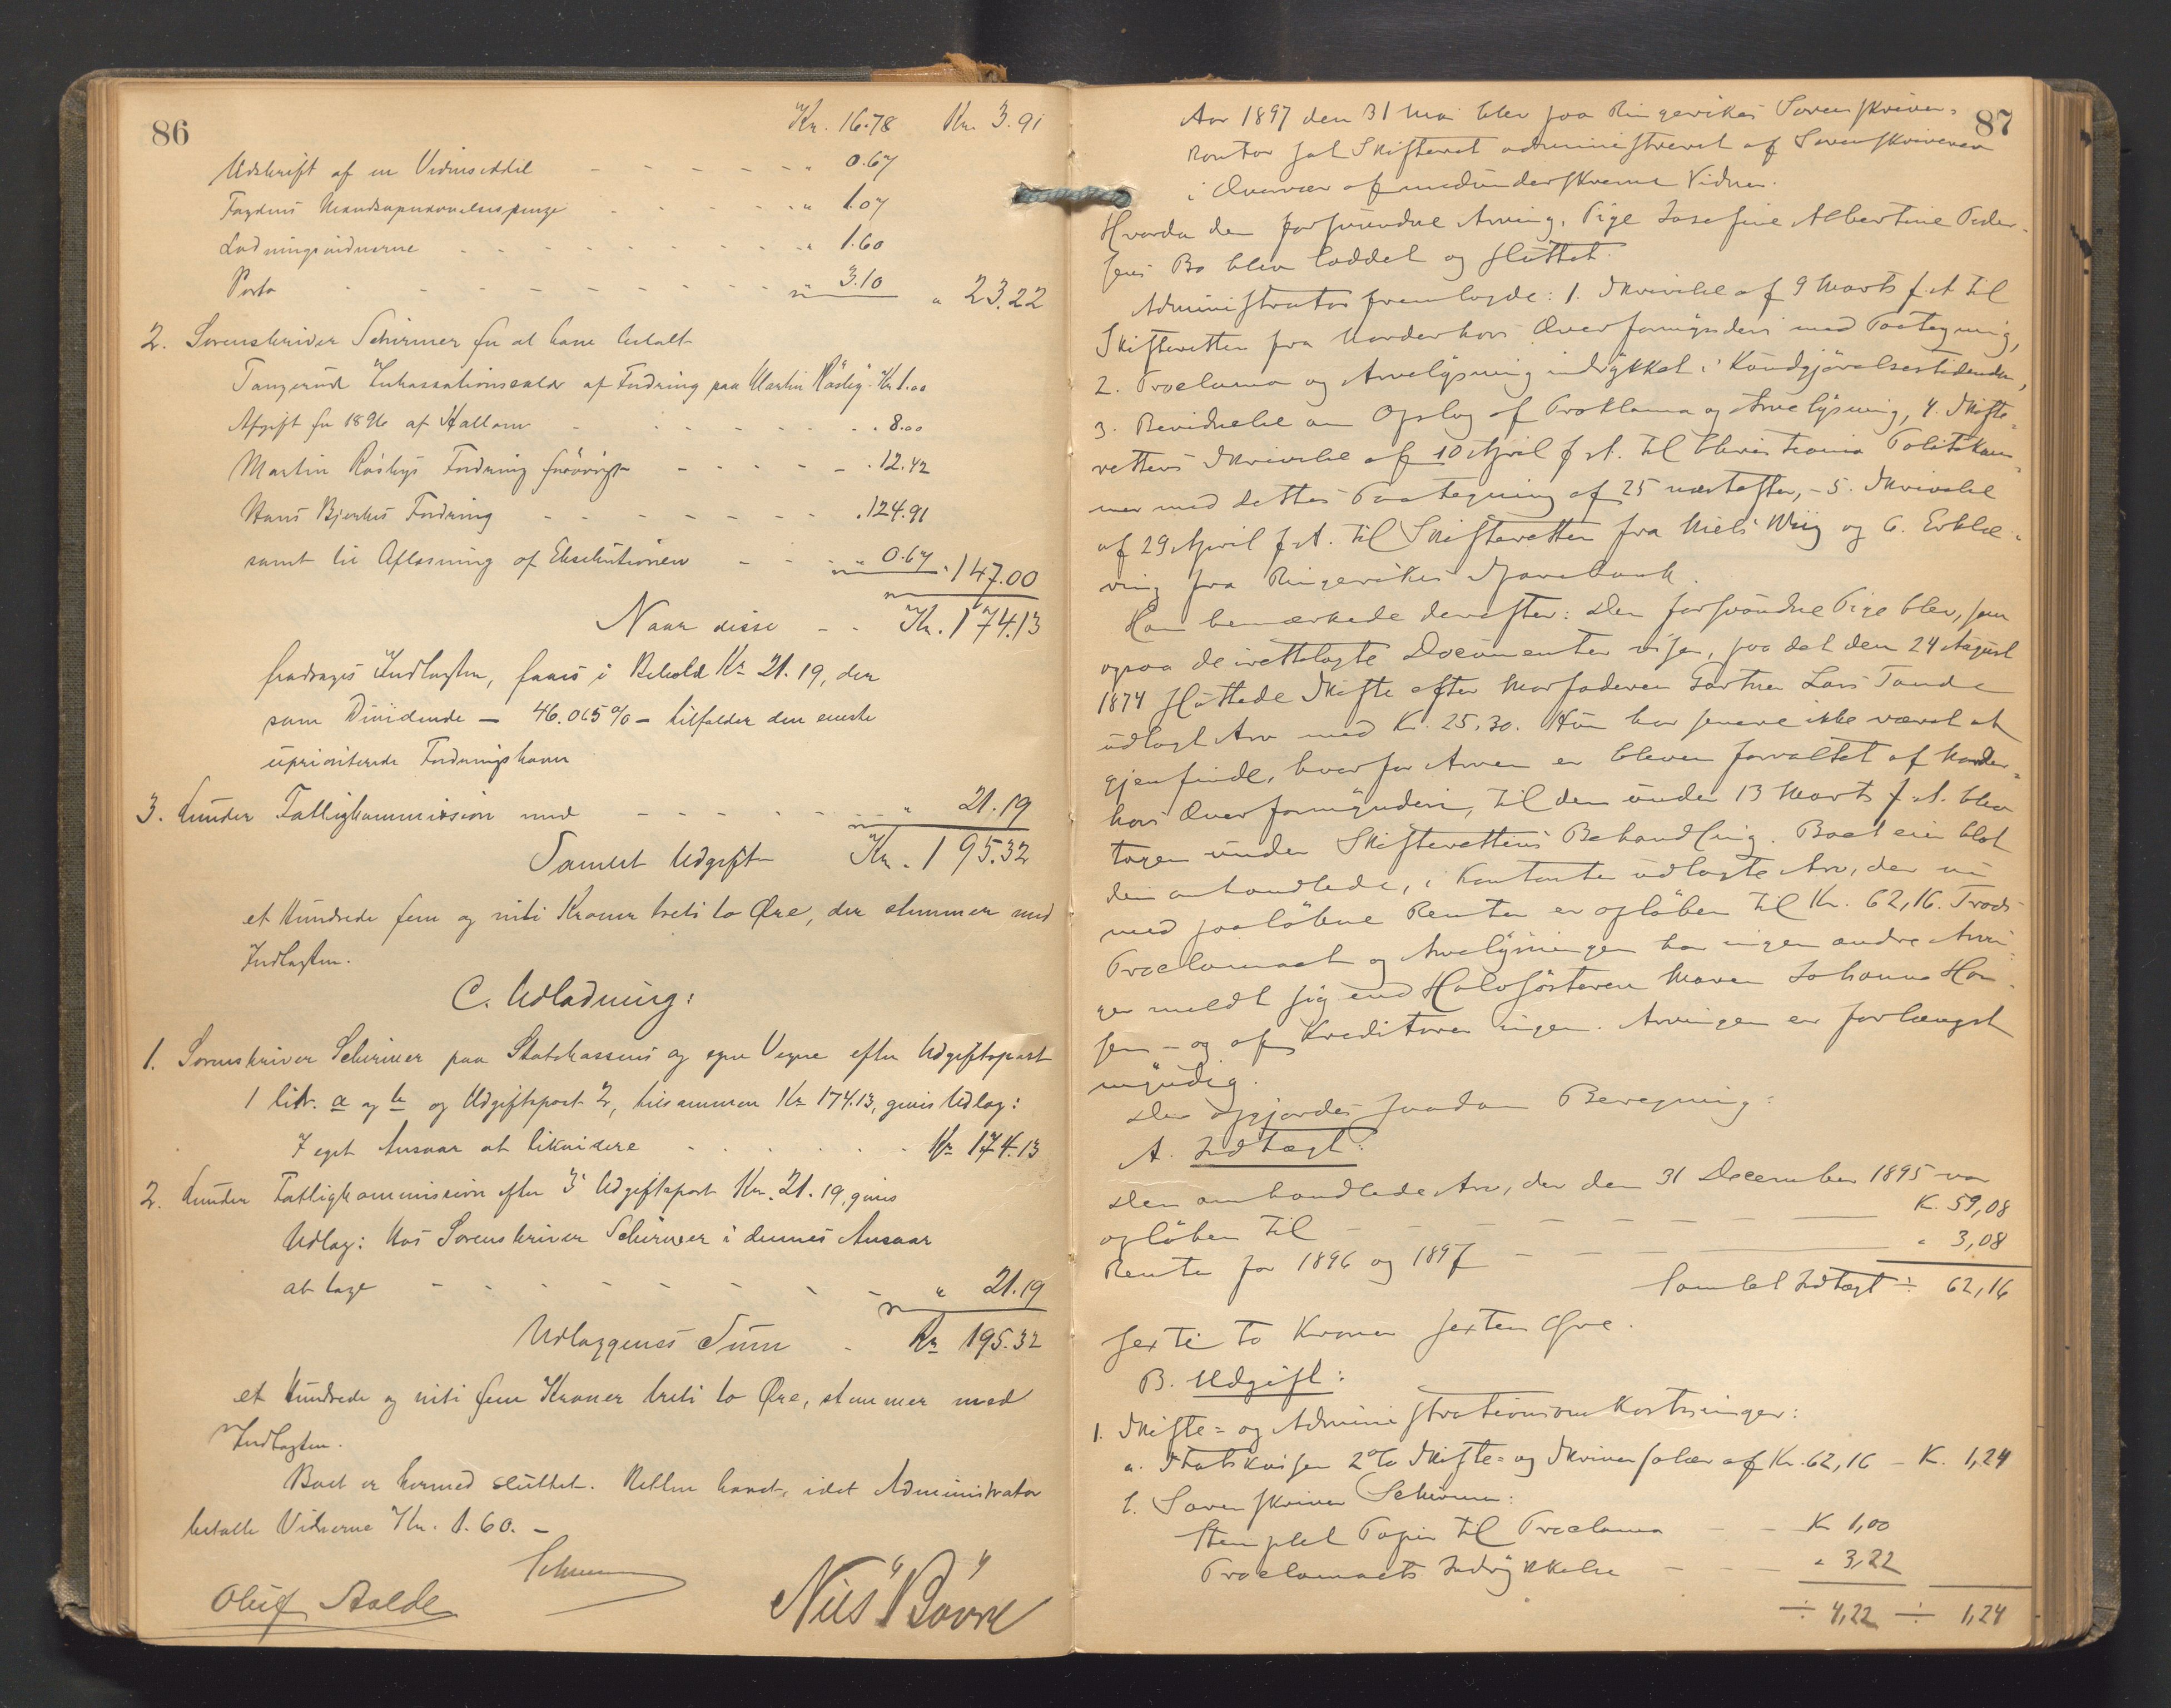 86
Kr. 16.78 Kr. 3.91
Udskrift af en Vidneseddel - - - - - " 0.67
Fogdens Mandsopnævnelsespenge - - - - " 1.07
Lodningsvidnerne - - - - - - - " 1.60
Porto - - - - - - - - " 3.10 " 23.22
2. Sorenskriver Schirmer for at have betalt
Tangerud Inkassationssalær af Fordring paa Martin Røshy Kr 1.00
Afgift for 1896 af Hallum - - - - - - " 8.00
Martin Røshys Fordring forøvrigt - - - - - " 12.42
Hans Bjerkes Fordring - - - - - - - " 124.91
samt til Aflæsning af Eksekutionen - - - " 0.67 " 147.00
Naar disse - - Kr. 174.13
fradrages Indtægten, faaes i Behold Kr 21.19, der
som Dividende — 46.065 % — tilfalder den eneste
uprioriterede Fordringshaver
3. Lunder Fattigkommission med - - - - - - " 21.19
Samlet Udgift Kr. 195.32
et Hundrede fem og niti Kroner treti to Øre, der stemmer med
Indtægten.
C. Udlodning:
1. Sorenskriver Schirmer paa Statskassens og egne Vegne efter Udgiftspost
1 litr. a og b og Udgiftspost 2, tilsammen Kr 174.13, gives Udlæg:
I eget Ansvar at likvidere - - - - - Kr 174.13
2. Lunder Fattigkommission efter 3' Udgiftspost Kr. 21.19, gives
Udlæg: Hos Sorenskriver Schirmer i dennes Ansvar
at tage - - - - - - - " 21.19
Udlæggenes Sum - Kr 195.32
et Hundrede og niti fem Kroner treti to Øre, stemmer med
Indtægten.
Boet er hermed sluttet. Retten hævet, idet Administrator
betalte Vidnerne Kr. 1.60. —
Schirmer
Oluf Aalde Nils Bovre
87
Aar 1897 den 31 Mai blev paa Ringerikes Sorenskriver-
kontor sat Skifteret administreret af Sorenskriveren
i Overvær af medunderskrevne Vidner.
Hvorda den forsvundne Arving, Pige Josefine Albertine Peder-
sens Bo blev loddet og sluttet.
Administrator fremlagde: 1. Skrivelse af 9 Marts f. A. til
Skifteretten fra Norderhovs Overformynderi med Paategning,
2. Proclama og Arvelysning indrykket i Kundgjørelsestidende,
3. Bevidnelse om Opslag af Proklama og Arvelysning, 4. Skifte-
rettens Skrivelse af 10 April f. A. til Christiania Politikam-
mer med dettes Paategning af 25 næstefter, - 5. Skrivelse
af 29 April f. A. til Skifteretten fra Niels Wiig og 6. Erklæ-
ring fra Ringerikes Sparebank.
Han bemærkede derefter: Den forsvundne Pige blev, som
ogsaa de irettelagte Documenter viser, paa det den 24 August
1874 sluttede Skifte efter Morfaderen Gartner Lars Tande
udlagt Arv med Kr. 25,30. Hun har senere ikke været at
gjenfinde, hvorfor Arven er bleven forvaltet af Norder-
hovs Overformynderi, til den under 13 Marts f. A. blev
tagen under Skifterettens Behandling. Boet eier blot
den omhandlede, i Kontanter udlagte Arv, der nu
med paaløbne Renter er opløben til Kr. 62,16. Trods
Proclamaet og Arvelysningen har ingen andre Arvin-
ger meldt sig end Halvsøsteren Maren Johanne Han-
sen - og af Kreditorer ingen. Arvingen er forlængst
myndig.
Der opgjordes saadan Beregning:
A. Indtægt:
Den omhandlede Arv, der den 31 December 1895 var
opløben til - - - - - - - K. 59,08
Rente for 1896 og 1897 - - - - " 3,08
Samlet Indtægt ÷ 62,16
sexti to Kroner sexten Øre.
B. Udgift:
1. Skifte- og Administrationsomkostninger:
a. Statskassen 2% Skifte- og Skriversalær af Kr. 62,16 - K. 1,24
b. Sorenskriver Schirmer:
Stemplet Papir til Proclama - - K 1,00
Proclamaets Indrykkelse - - - " 3,22
÷ 4,22 ÷ 1,24